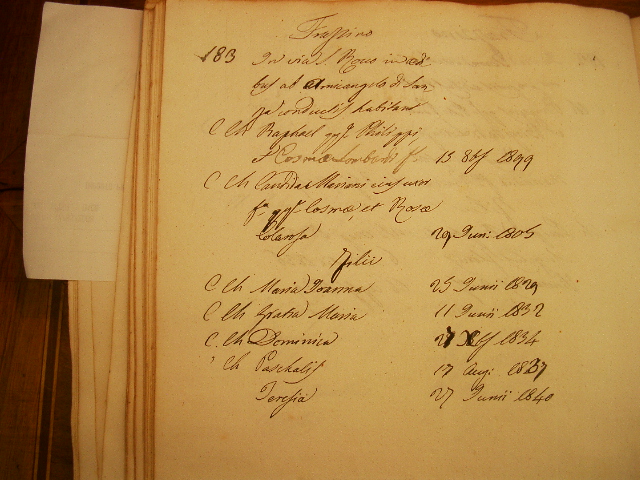 Frassino
183 In via S. Rocco in ædi
bus ab Amicangelo di San
za conductis habitant
C Ch Raphael qm Philippi
f. 15 8bs 1899
C Ch Candida Mariani ejus uxor
fa qm Cosmæ, et Rosæ
Colarosa 29 Juni 1805
Filii
C Ch Maria Joanna 25 Junii 1829
C Ch Gratia Maria 11 Junii 1832
C. Ch Dominica 27 Xbs 1834
Ch Paschalis 17 Augi 1837
Teresia 27 Junii 1840